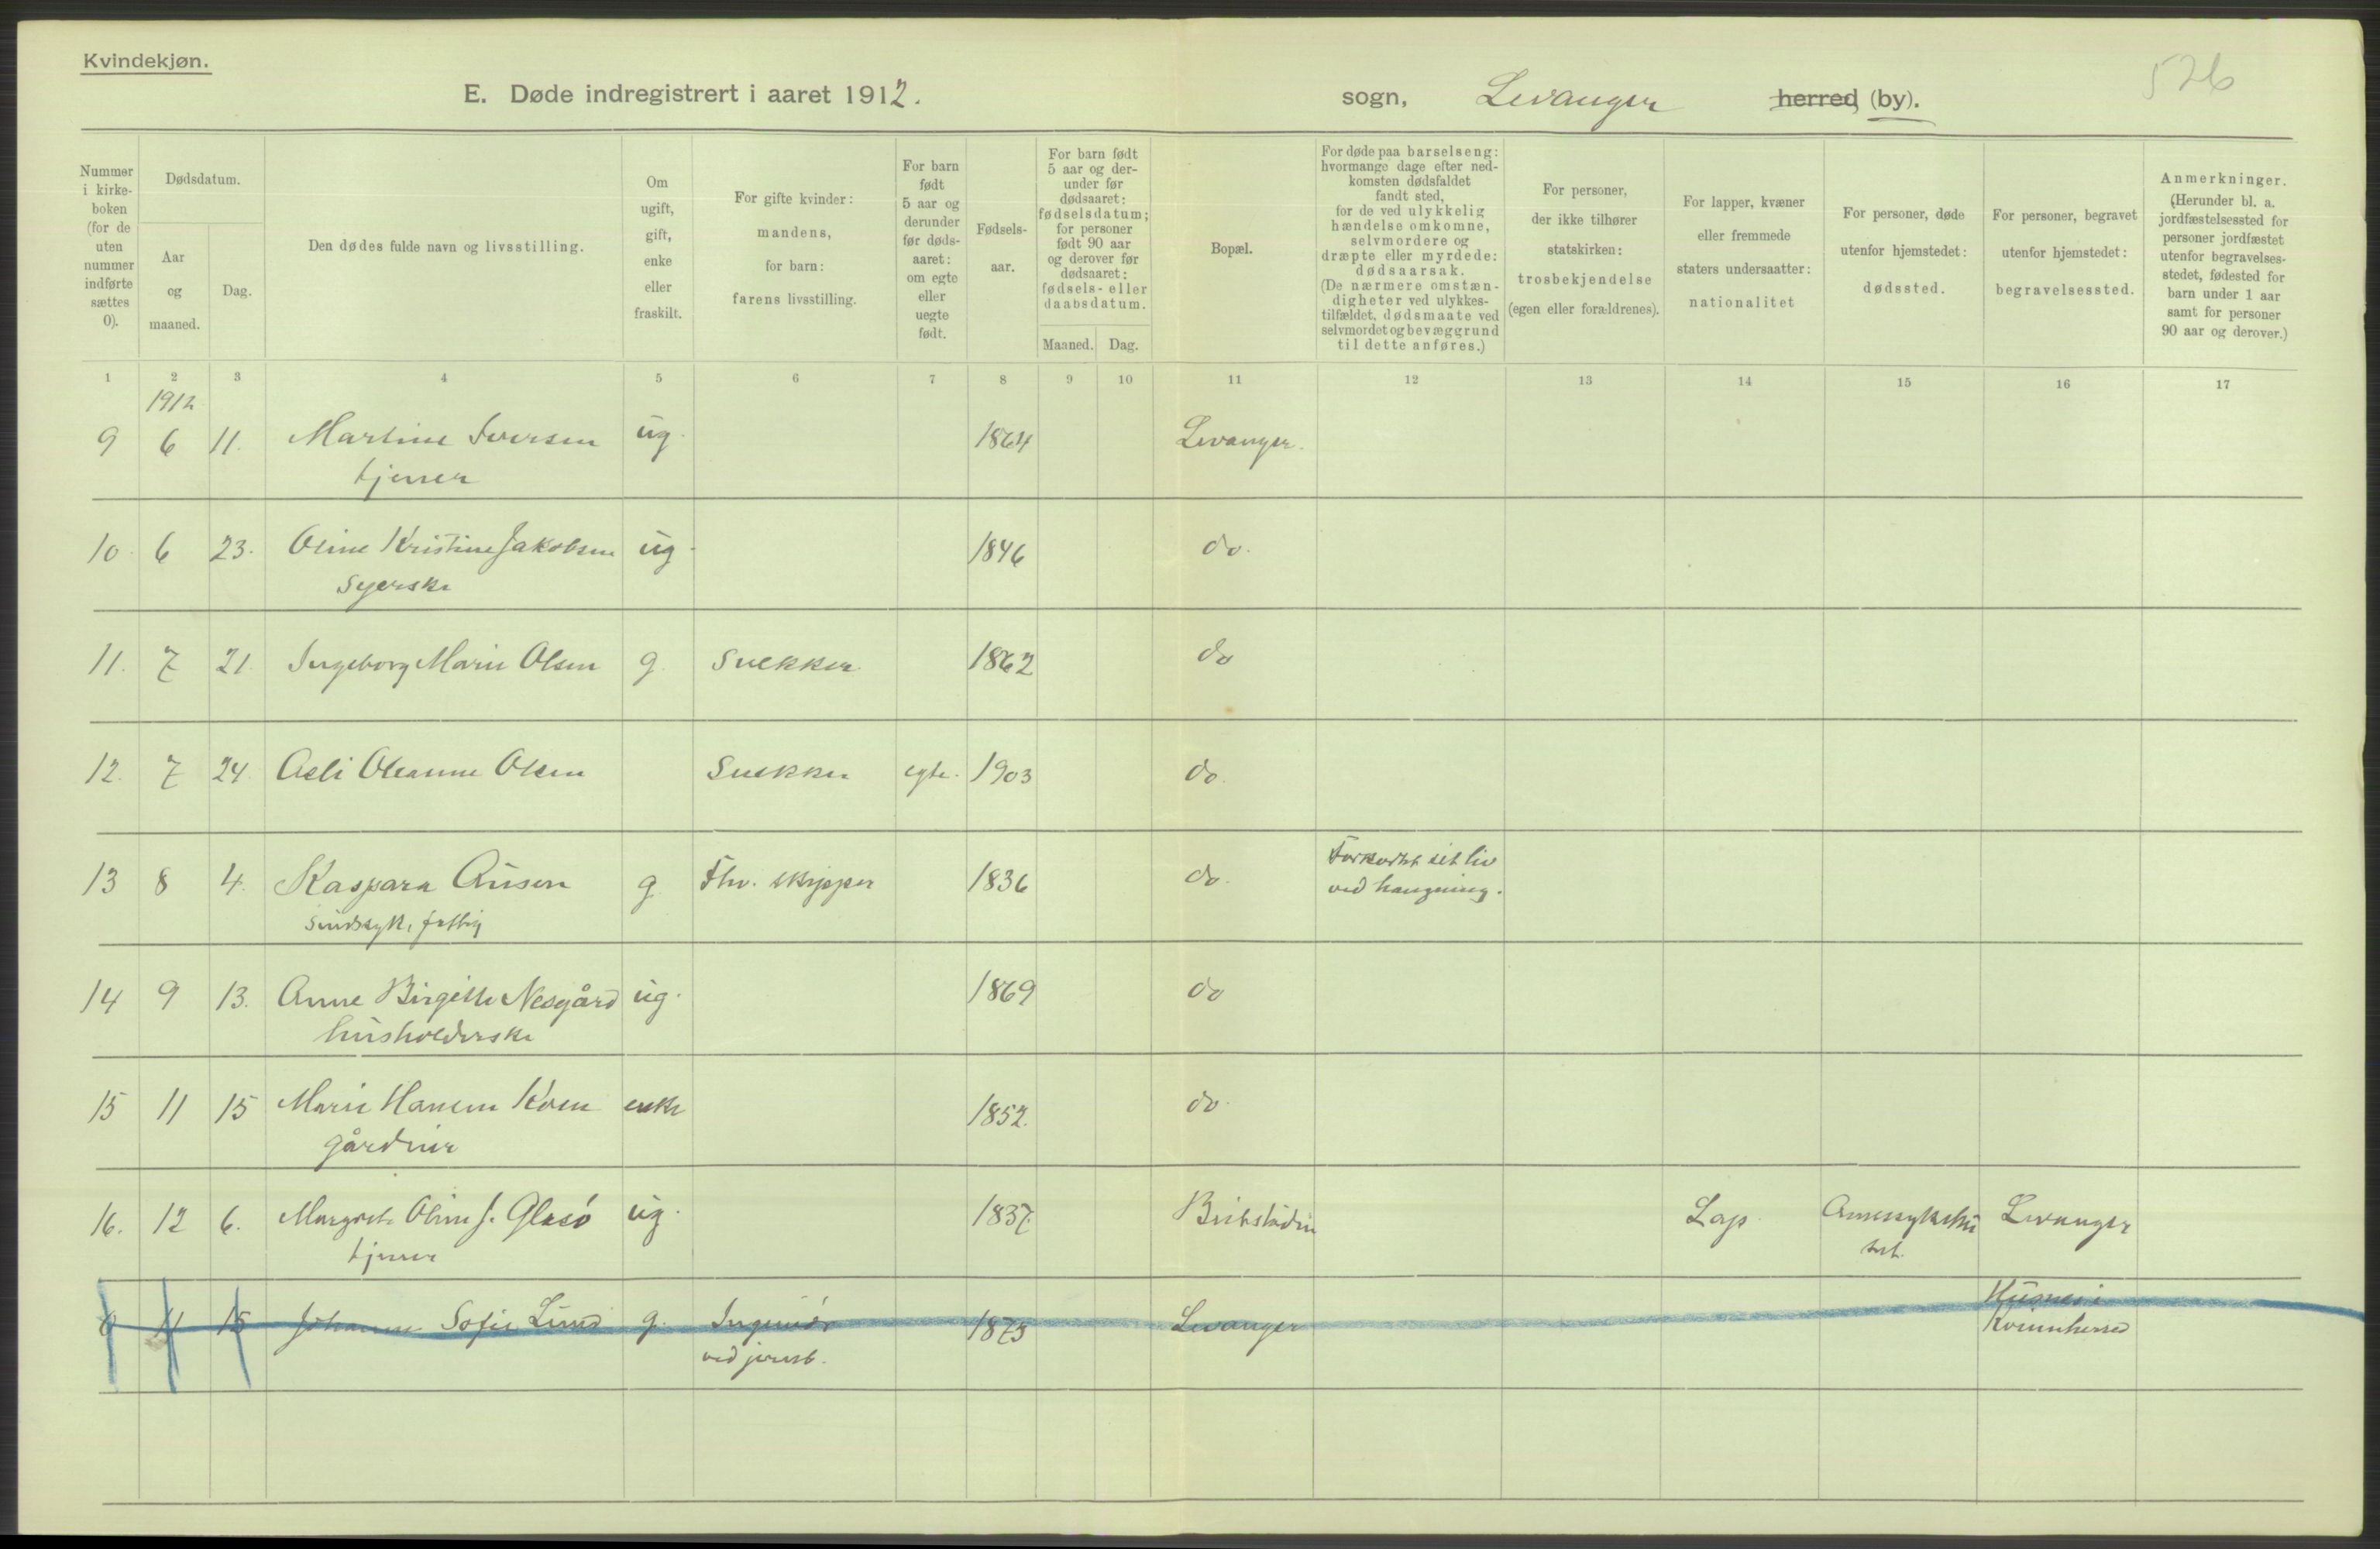 Kvindekjøn.
526
E. Døde indregistrert i aaret 1912. sogn, Levanger herred (by).
Nummer i kirke-boken (for de uten nummer indførte sættes 0).
Dødsdatum.
Aar og maaned.
Dag.
Den dødes fulde navn og livsstilling.
Om ugift, gift, enke eller fraskilt.
For gifte kvinder: mandens, for barn: farens livsstilling.
For barn født 5 aar og derunder før døds-aaret: om egte eller uegte født.
Fødsels-aar.
For barn født 5 aar og der-under før dødsaaret: fødselsdatum; for personer født 90 aar og derover før dødsaaret: fødsels- eller daabsdatum.
Maaned. Dag.
Bopæl.
For døde paa barselseng: hvormange dage efter ned-komsten dødsfaldet fandt sted, for de ved ulykkelig hændelse omkomne, selvmordere og dræpte eller myrdede: dødsaarsak. (De nærmere omstæn-digheter ved ulykkes-tilfældet, dødsmaate ved selvmordet og bevæggrund til dette anføres.)
For personer, der ikke tilhører statskirken: trosbekjendelse (egen eller forældrenes).
For lapper, kvæner eller fremmede staters undersaatter: nationalitet
For personer, døde utenfor hjemstedet: dødssted.
For personer, begravet utenfor hjemstedet: begravelsessted.
Anmerkninger. (Herunder bl. a. jordfæstelsessted for personer jordfæstet utenfor begravelses-stedet, fødested for barn under 1 aar samt for personer 90 aar og derover.)
1 2 3 4 5 6 7 8 9 10 11 12 13 14 15 16 17
1912
9 6 11. Martine Iversen ug. 1864 Levanger.
tjener
10. 6 23. Oline Kristine Jakobsen ug. 1846 do.
syerske
11. 7 21. Ingeborg Marie Olsen g. snekker 1862 do
12. 7 24. Oleanne Olsen snekker egte. 1903 do.
13 8 4. Kaspara g. Fhv. skipper 1836 do. Forkortet sit liv
ved hængning.
sindssyk, fattig
14 9 13. Anne Birgitte Nesgård ug. 1869 do
husholderske
15 11 15 Marie Hansen enke 1852. do.
16. 12 6. Margrete Oline J. Glesö ug. 1837. Lap Levanger
tjener
0 11 15 Johanne Sofie Lund g. Ingeniör 1873 Levanger Husnes i
ved jernb. Kvinnherred